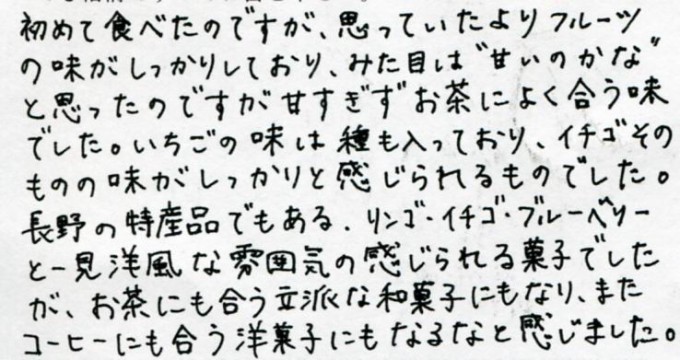 初めて食べたのですが、思っていたよりフルーツ
の味がしっかりしており、みた目は"甘いのかな"
と思ったのですが甘すぎずお茶によく合う味
でした。いちごの味は種も入っており、イチゴその
ものの味がしっかりと感じられるものでした。
長野の特産品でもある、リンゴ・イチゴ・ブルーベリー
と一見洋風な雰囲気の感じられる菓子でした
が、お茶にも合う立派な和菓子にもなり、また
コーヒーにも合う洋菓子にもなるなと感じました。